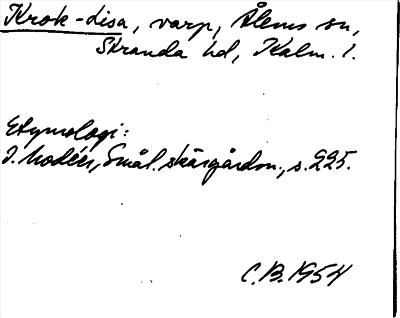 Krok-disa, varp, Ålems sn,
Stranda hd, Kalm. l.
Etymologi:
I. Modéer, Smål. skärgårdsn., s. 225.
C.B. 1954